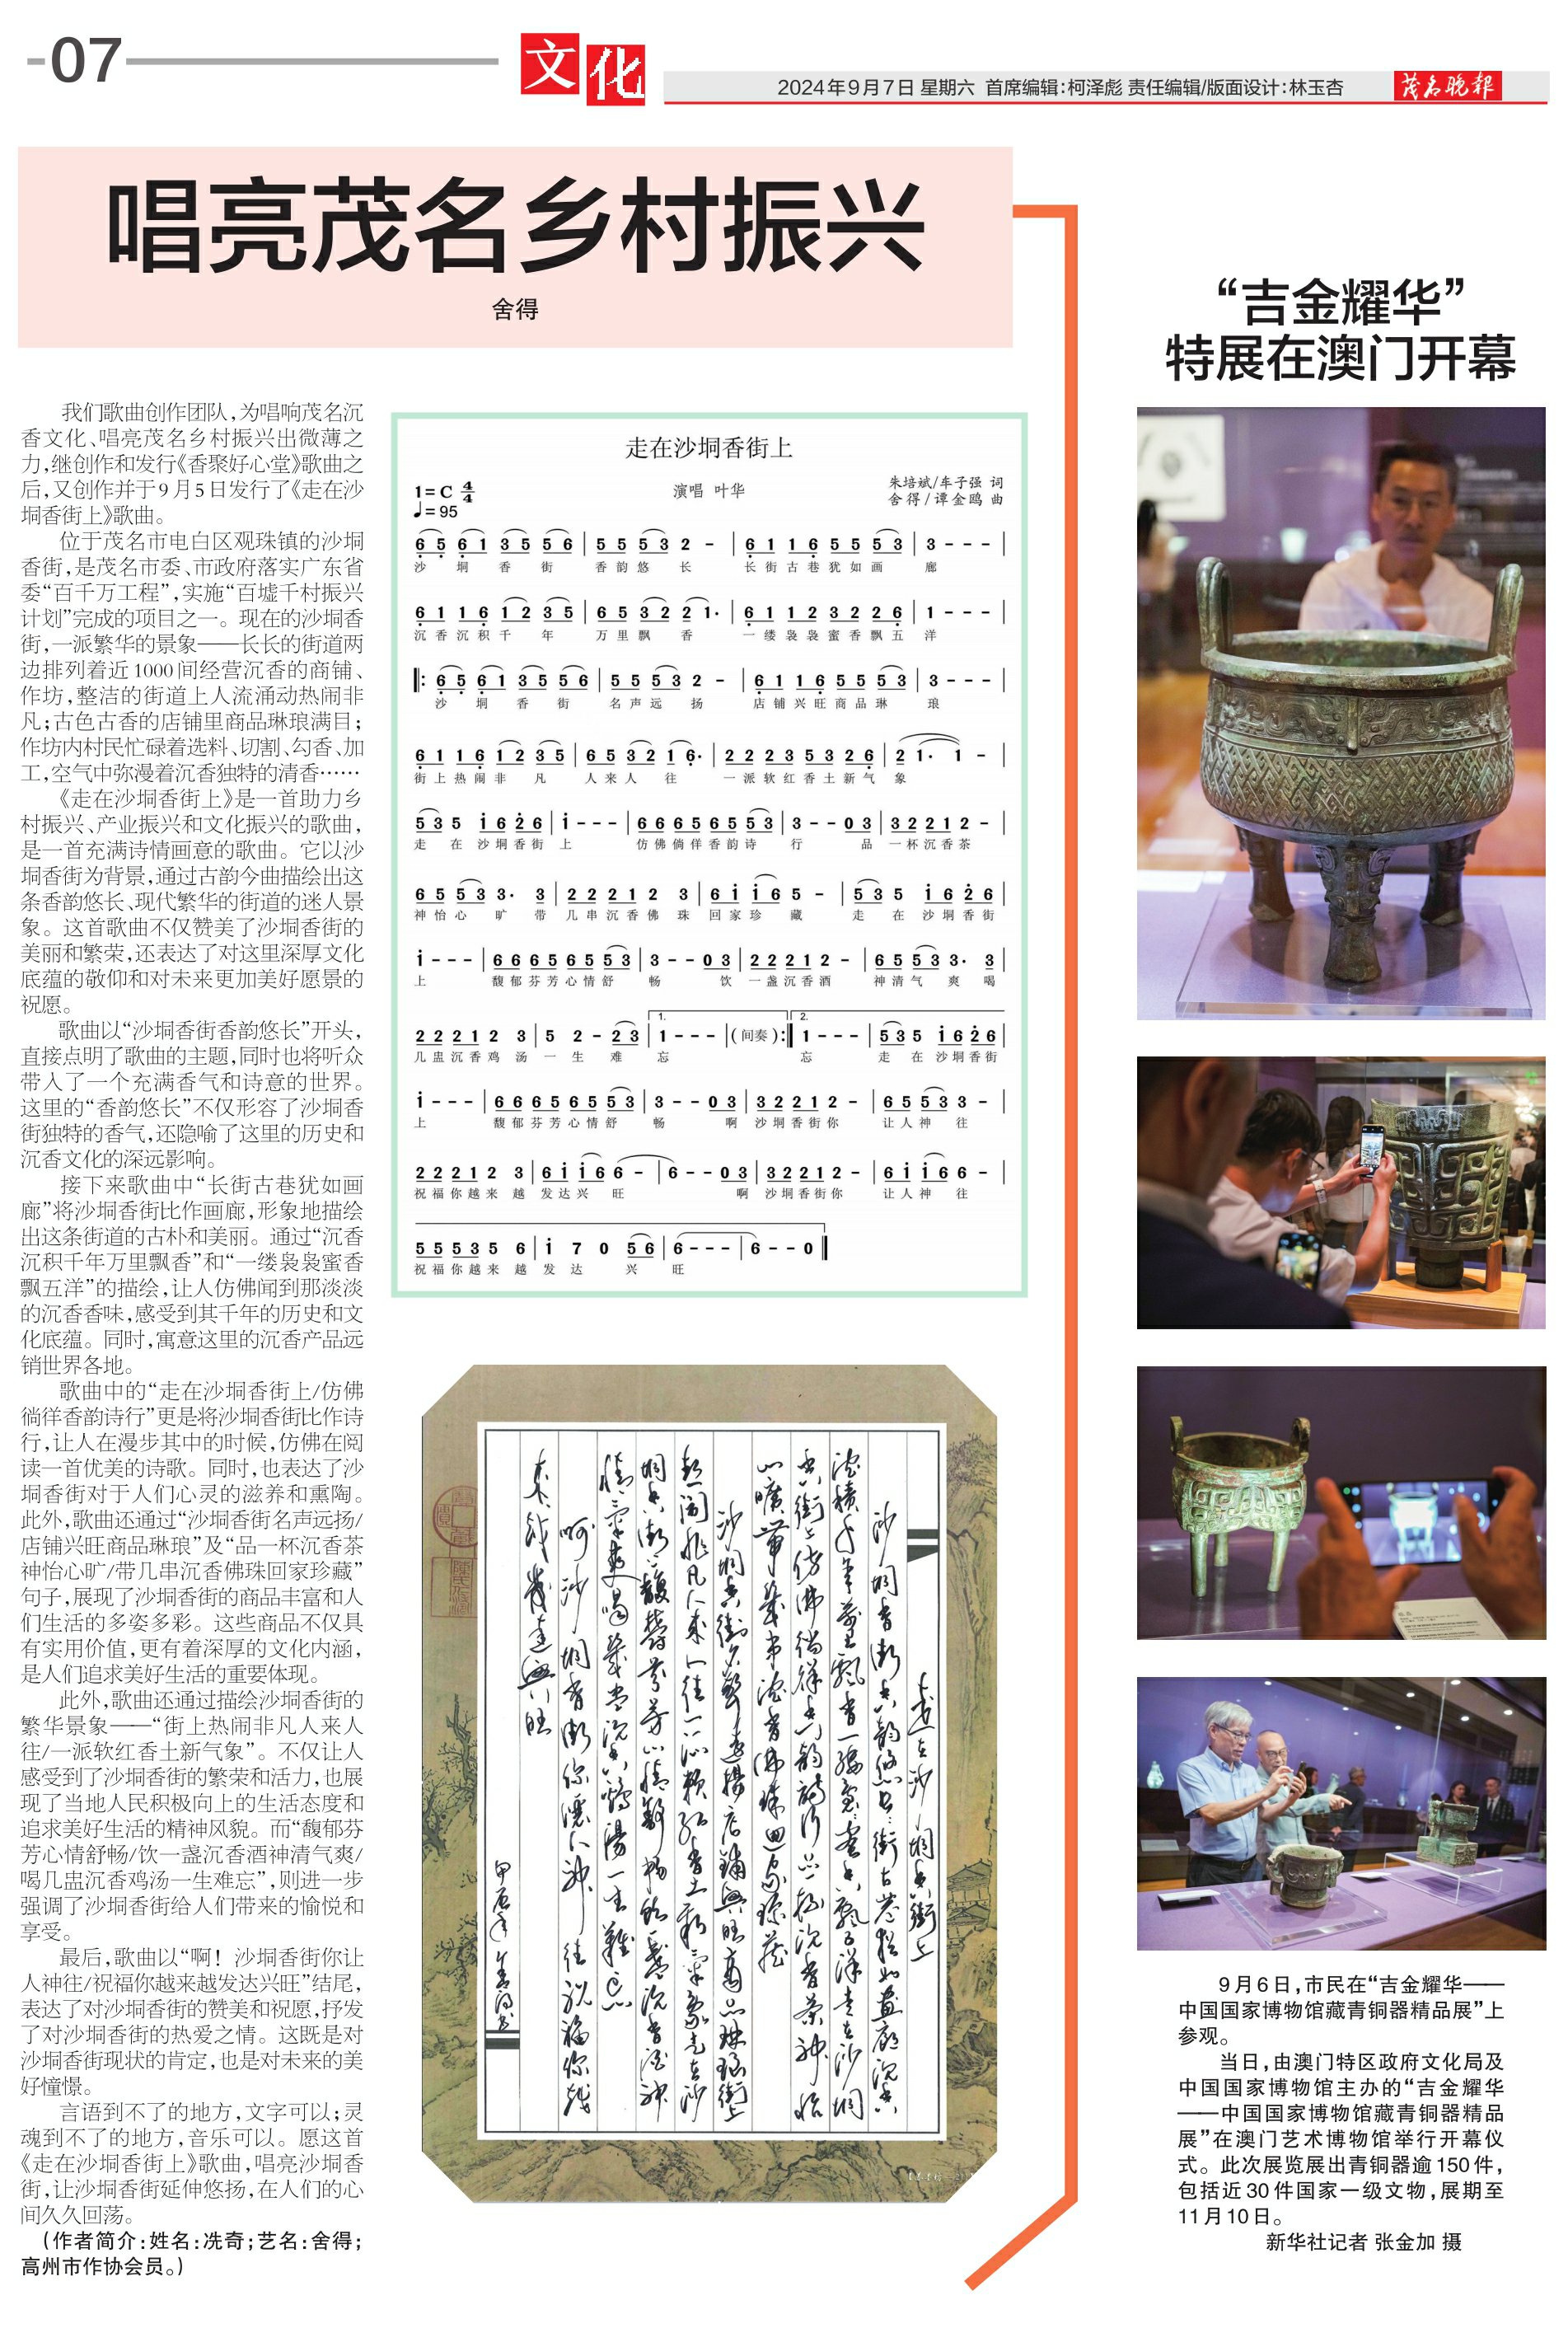 07
文化
2024年9月7日 星期六 首席编辑:柯泽彪 责任编辑/版面设计:林玉杏
茂名晚报
唱亮茂名乡村振兴
舍得
我们歌曲创作团队,为唱响茂名沉
香文化、唱亮茂名乡村振兴出微薄之
力,继创作和发行《香聚好心堂》歌曲之
后,又创作并于9月5日发行了《走在沙
垌香街上》歌曲。
位于茂名市电白区观珠镇的沙垌
香街,是茂名市委、市政府落实广东省
委“百千万工程”,实施“百墟千村振兴
计划”完成的项目之一。现在的沙垌香
街,一派繁华的景象——长长的街道两
边排列着近1000间经营沉香的商铺、
作坊,整洁的街道上人流涌动热闹非
凡;古色古香的店铺里商品琳琅满目;
作坊内村民忙碌着选料、切割、勾香、加
工,空气中弥漫着沉香独特的清香……
《走在沙垌香街上》是一首助力乡
村振兴、产业振兴和文化振兴的歌曲,
是一首充满诗情画意的歌曲。它以沙
垌香街为背景,通过古韵今曲描绘出这
条香韵悠长、现代繁华的街道的迷人景
象。这首歌曲不仅赞美了沙垌香街的
美丽和繁荣,还表达了对这里深厚文化
底蕴的敬仰和对未来更加美好愿景的
祝愿。
歌曲以“沙垌香街香韵悠长”开头,
直接点明了歌曲的主题,同时也将听众
带入了一个充满香气和诗意的世界。
这里的“香韵悠长”不仅形容了沙垌香
街独特的香气,还隐喻了这里的历史和
沉香文化的深远影响。
接下来歌曲中“长街古巷犹如画
廊”将沙垌香街比作画廊,形象地描绘
出这条街道的古朴和美丽。通过“沉香
沉积千年万里飘香”和“一缕袅袅蜜香
飘五洋”的描绘,让人仿佛闻到那淡淡
的沉香香味,感受到其千年的历史和文
化底蕴。同时,寓意这里的沉香产品远
销世界各地。
歌曲中的“走在沙垌香街上/仿佛
徜徉香韵诗行”更是将沙垌香街比作诗
行,让人在漫步其中的时候,仿佛在阅
读一首优美的诗歌。同时,也表达了沙
垌香街对于人们心灵的滋养和熏陶。
此外,歌曲还通过“沙垌香街名声远扬/
店铺兴旺商品琳琅”及“品一杯沉香茶
神怡心旷/带几串沉香佛珠回家珍藏”
句子,展现了沙垌香街的商品丰富和人
们生活的多姿多彩。这些商品不仅具
有实用价值,更有着深厚的文化内涵,
是人们追求美好生活的重要体现。
此外,歌曲还通过描绘沙垌香街的
繁华景象——“街上热闹非凡人来人
往/一派软红香土新气象”。不仅让人
感受到了沙垌香街的繁荣和活力,也展
现了当地人民积极向上的生活态度和
追求美好生活的精神风貌。而“馥郁芬
芳心情舒畅/饮一盏沉香酒神清气爽/
喝几盅沉香鸡汤一生难忘”,则进一步
强调了沙垌香街给人们带来的愉悦和
享受。
最后,歌曲以“啊！沙垌香街你让
人神往/祝福你越来越发达兴旺”结尾,
表达了对沙垌香街的赞美和祝愿,抒发
了对沙垌香街的热爱之情。这既是对
沙垌香街现状的肯定,也是对未来的美
好憧憬。
言语到不了的地方,文字可以;灵
魂到不了的地方,音乐可以。愿这首
《走在沙垌香街上》歌曲,唱亮沙垌香
街,让沙垌香街延伸悠扬,在人们的心
间久久回荡。
(作者简介:姓名:冼奇;艺名:舍得;
高州市作协会员。)
走在沙垌香街上
1=C 4/4
♩=95
演唱 叶华
朱培斌/车子强 词
舍得/谭金鸥 曲
6 5 6 1 3 5 5 6 | 5 5 5 3 2 - | 6 1 1 6 5 5 5 3 | 3 - - - |
沙 垌 香 街 香韵悠 长 长街古巷犹如画 廊
6 1 1 6 1 2 3 5 | 6 5 3 2 2 1· | 6 1 1 2 3 2 2 6 | 1 - - - |
沉香沉积千 年 万里飘 香 一缕袅袅蜜香飘五 洋
‖: 6 5 6 1 3 5 5 6 | 5 5 5 3 2 - | 6 1 1 6 5 5 5 3 | 3 - - - |
沙 垌 香 街 名声远 扬 店铺兴旺商品琳 琅
6 1 1 6 1 2 3 5 | 6 5 3 2 1 6· | 2 2 2 3 5 3 2 6 | 2 1· 1 - |
街上热闹非 凡 人来人 往 一派软红香土新气 象
5 3 5 i 6 2 6 | i - - - | 6 6 6 5 6 5 5 3 | 3 - - 0 3 | 3 2 2 1 2 - |
走 在 沙垌香街 上 仿佛徜徉香韵诗 行 品 一杯沉香茶
6 5 5 3 3· 3 | 2 2 2 1 2 3 | 6 i i 6 5 - | 5 3 5 i 6 2 6 |
神怡心 旷 带 几串沉香佛 珠 回家珍 藏 走 在 沙垌香街
i - - - | 6 6 6 5 6 5 5 3 | 3 - - 0 3 | 2 2 2 1 2 - | 6 5 5 3 3· 3 |
上 馥郁芬芳心情舒 畅 饮 一盏沉香酒 神清气 爽 喝
2 2 2 1 2 3 | 5 2 - 2 3 | 1. 1 - - - | (间奏) :‖ 2. 1 - - - | 5 3 5 i 6 2 6 |
几盅沉香鸡 汤 一 生 难 忘 忘 走 在 沙垌香街
i - - - | 6 6 6 5 6 5 5 3 | 3 - - 0 3 | 3 2 2 1 2 - | 6 5 5 3 3 - |
上 馥郁芬芳心情舒 畅 啊 沙垌香街你 让人神 往
2 2 2 1 2 3 | 6 i i 6 6 - | 6 - - 0 3 | 3 2 2 1 2 - | 6 i i 6 6 - |
祝福你越来 越 发达兴 旺 啊 沙垌香街你 让人神 往
5 5 5 3 5 6 | i 7 0 5 6 | 6 - - - | 6 - - 0 ‖
祝福你越来 越 发 达 兴 旺
走在沙垌香街上
“吉金耀华”
特展在澳门开幕
9月6日,市民在“吉金耀华——
中国国家博物馆藏青铜器精品展”上
参观。
当日,由澳门特区政府文化局及
中国国家博物馆主办的“吉金耀华
——中国国家博物馆藏青铜器精品
展”在澳门艺术博物馆举行开幕仪
式。此次展览展出青铜器逾150件,
包括近30件国家一级文物,展期至
11月10日。
新华社记者 张金加 摄